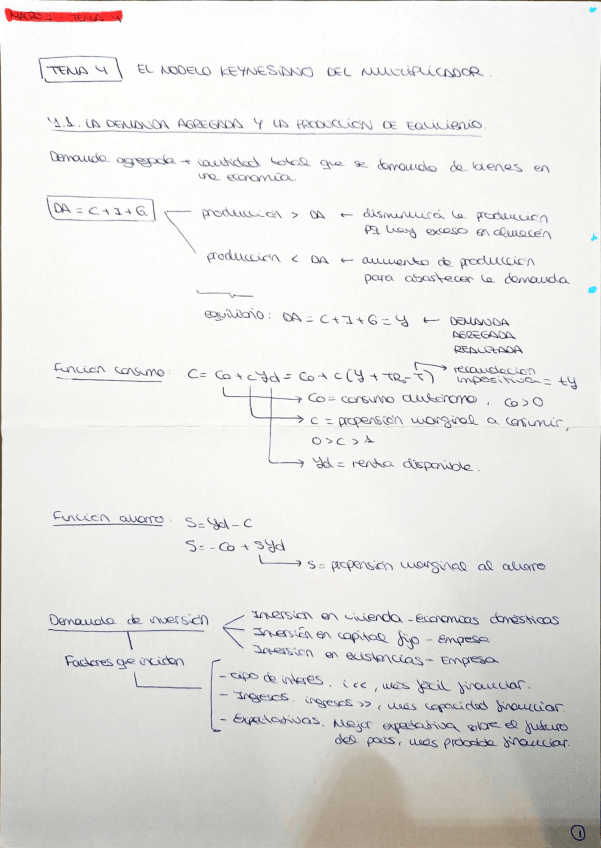 MACRO - TEMA 4
TEMA 4 EL MODELO KEYNESIANO DEL MULTIPLICADOR.
4.1. LA DEMANDA AGREGADA Y LA PRODUCCIÓN DE EQUILIBRIO.
Demanda agregada → cantidad total que se demanda de bienes en
una economía.
DA = C + I + G
producción > DA ← disminuirá la producción
pq hay exceso en almacén
producción < DA ← aumento de producción
para abastecer la demanda
equilibrio: DA = C + I + G = Y ← DEMANDA
AGREGADA
REALIZADA
Función consumo: C = Co + cYd = Co + c(Y + TRo - T) → recaudación
impositiva = tY
Co = consumo autónomo, Co > 0
c = propensión marginal a consumir,
0 > c > 1
Yd = renta disponible.
Función ahorro: S = Yd - C
S = -Co + SYd
S = propensión marginal al ahorro
Demanda de inversión
Inversión en vivienda - Economías domésticas
Inversión en capital fijo - Empresa
Inversión en existencias - Empresa
Factores qe inciden
- tipo de interés. i <<, más fácil financiar.
- Ingresos. ingresos >>, más capacidad financiar.
- Expectativas. Mejor expectativa sobre el futuro
del país, más probable financiar.
1